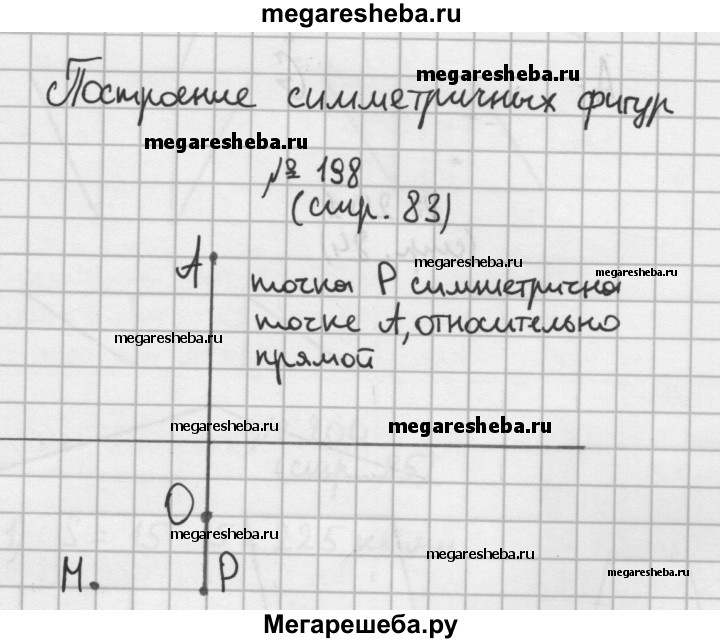 megaresheba.ru
Построение симметричных фигур
megaresheba.ru
megaresheba.ru
№ 198
(стр. 83)
A
megaresheba.ru
megaresheba.ru
точка P симметрична
точке A, относительно
прямой
megaresheba.ru
megaresheba.ru
megaresheba.ru
O
megaresheba.ru
megaresheba.ru
M. P
megaresheba.ru
Мегарешеба.ру